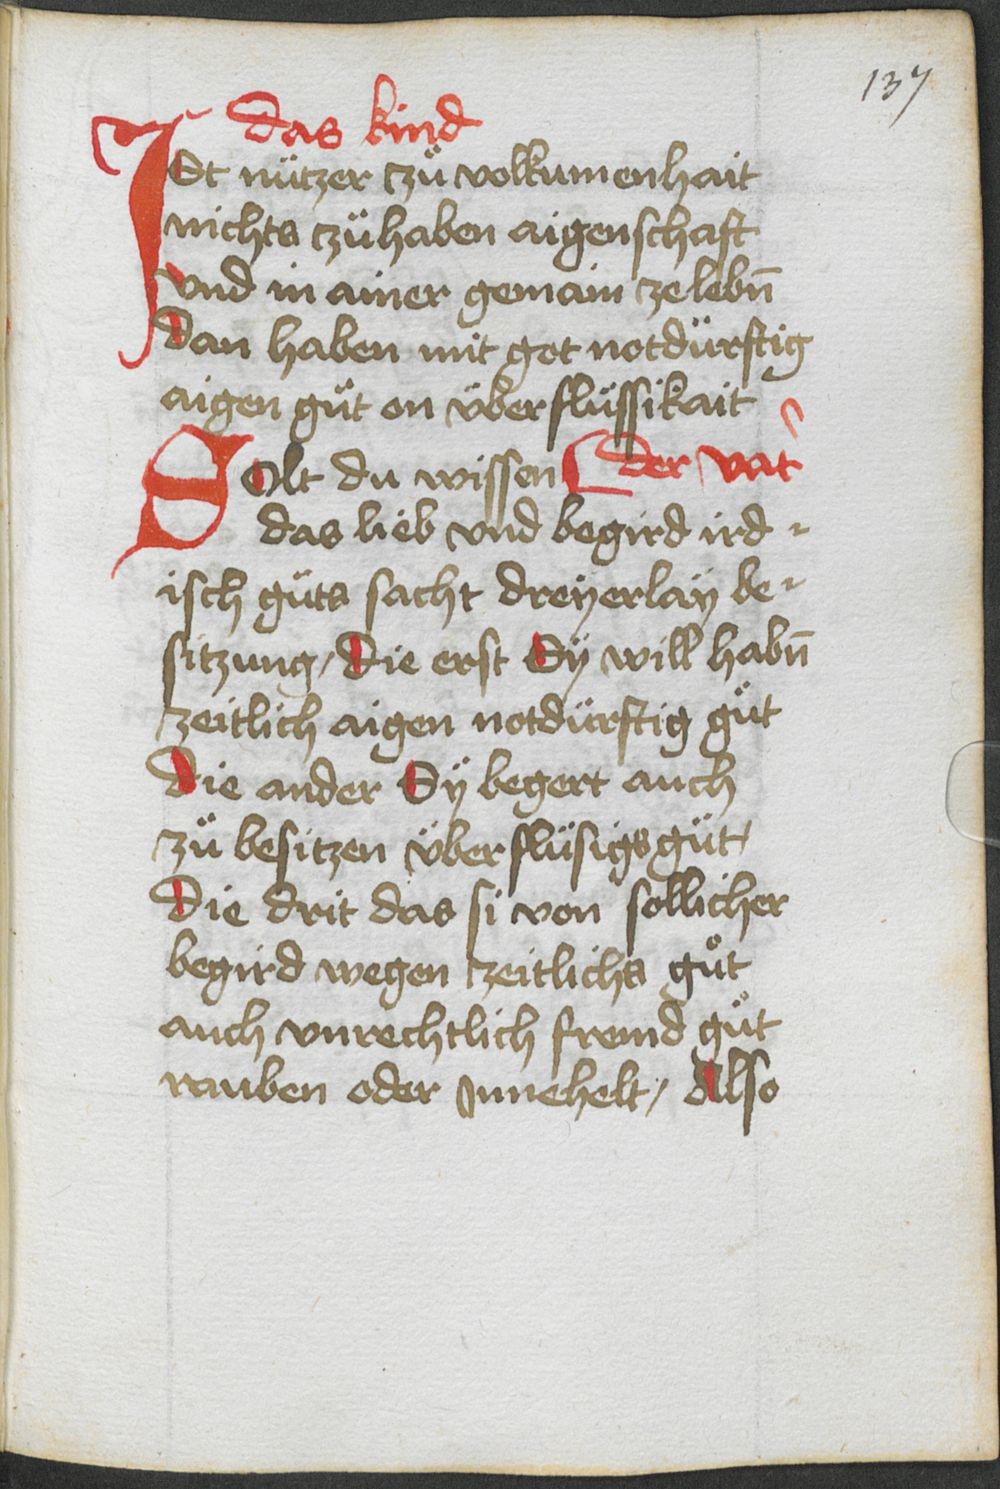 137
das kind
ISt nützer zů volkumenhait
nichts zůhaben aigenschaft
vnd in ainer gemain zelebn̄
Dan haben mit got notdürftig
aigen gůt on überflüssikait
SOlt du wissen der vat᷑
das lieb vnd begird ird-
isch gůts sacht dreyerlaÿ be-
sitzung / Die erst Sÿ will habn̄
zeitlich aigen notdürftig gůt
Die ander Sÿ begert auch
zů besitzen überflüsigs gůt /
Die drit das si von sollicher
begird wegen zeitlichs gůt
auch vnrechtlich fremd gůt
rauben oder Jnnehelt / Also